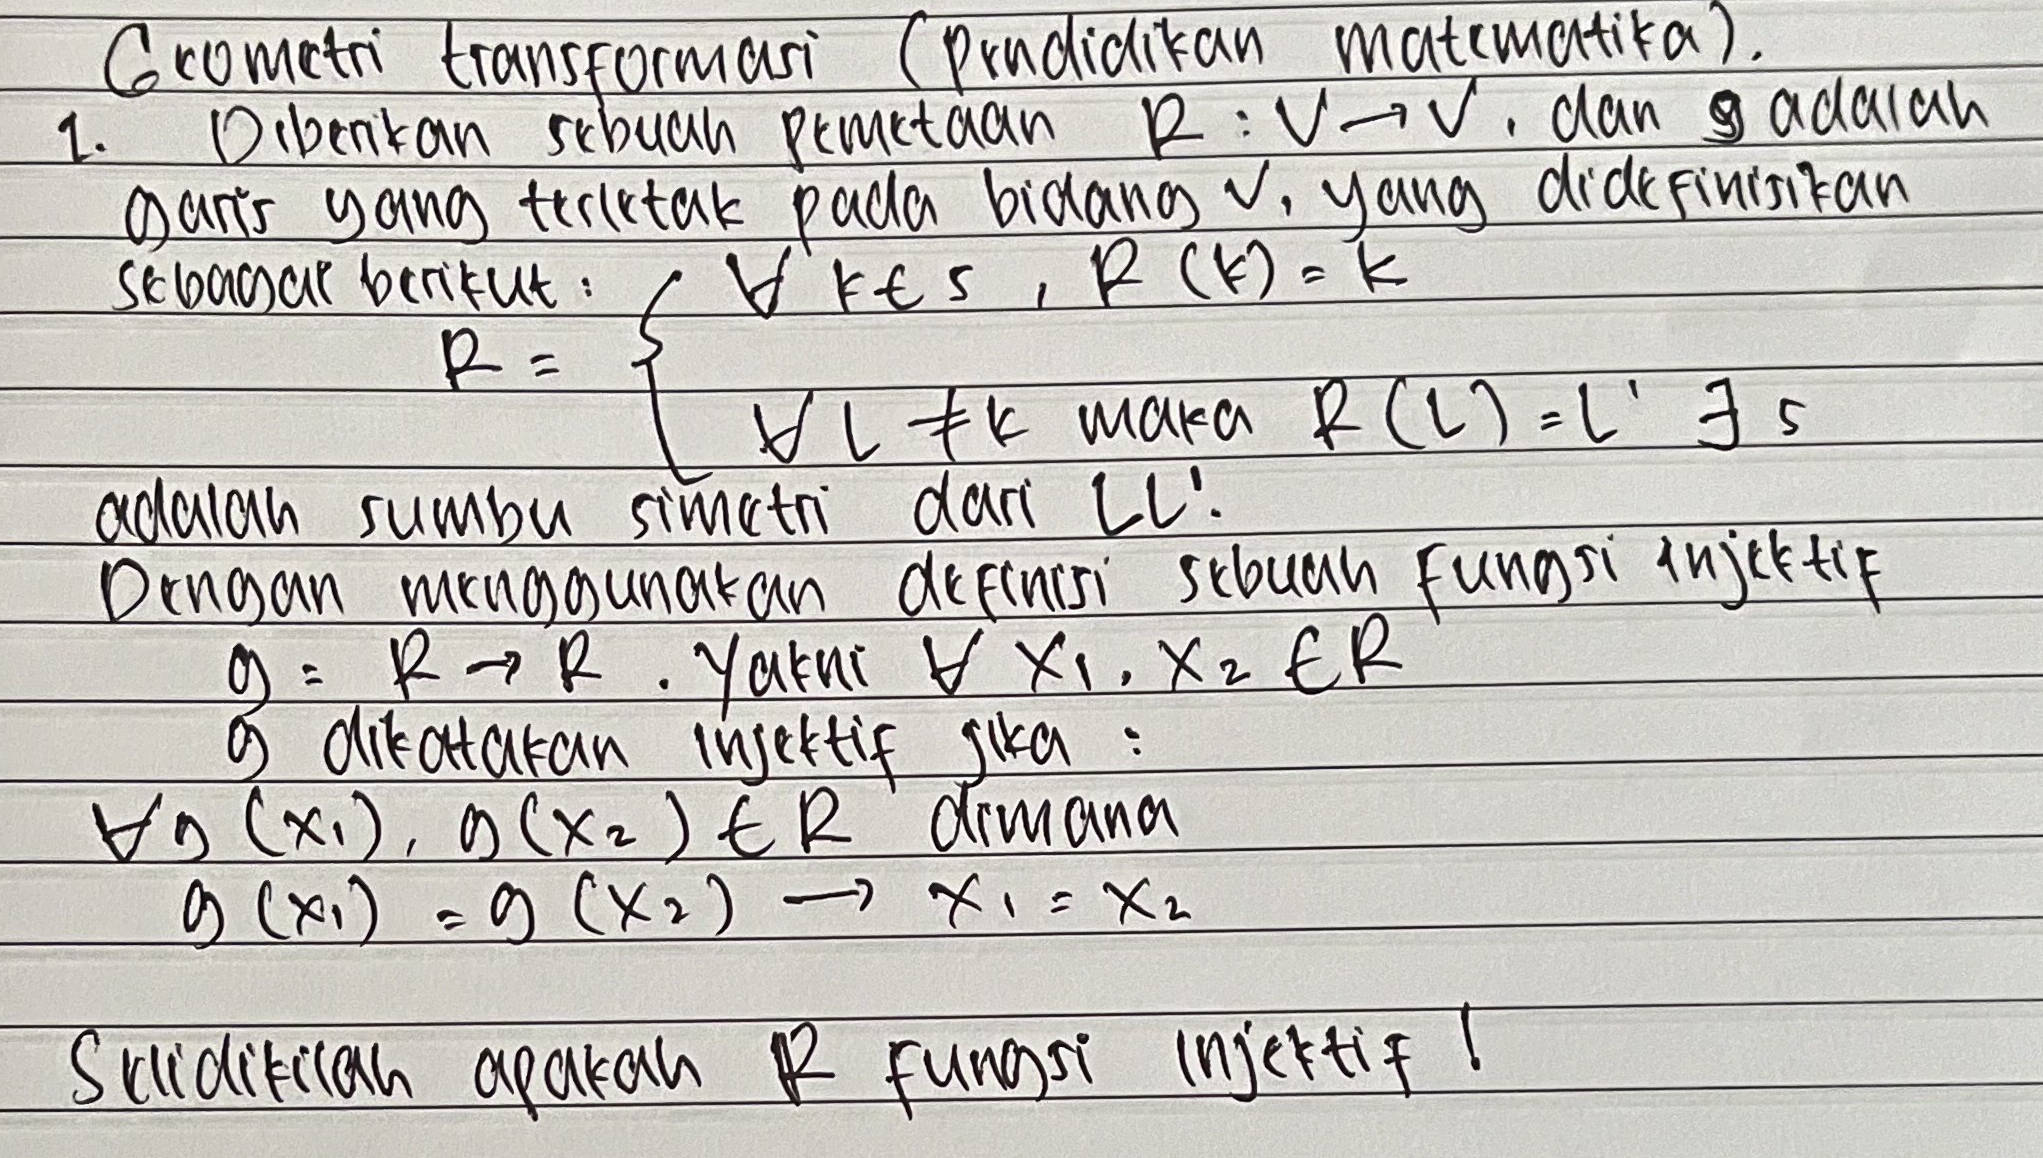 Geometri transformasi (pendidikan matematika).
1. Diberikan sebuah pemetaan R : V → V, dan g adalah
garis yang terletak pada bidang V, yang didefinisikan
sebagai berikut : ∀ k ∈ s, R (k) = k
R = {
∀ L ≠ k maka R (L) = L' ∃ s
adalah sumbu simetri dari LL'.
Dengan menggunakan definisi sebuah fungsi injektif
g = R → R. Yakni ∀ x₁, x₂ ∈ R
g dikatakan injektif jika :
∀ g (x₁), g (x₂) ∈ R dimana
g (x₁) = g (x₂) → x₁ = x₂
Selidikilah apakah R fungsi injektif !